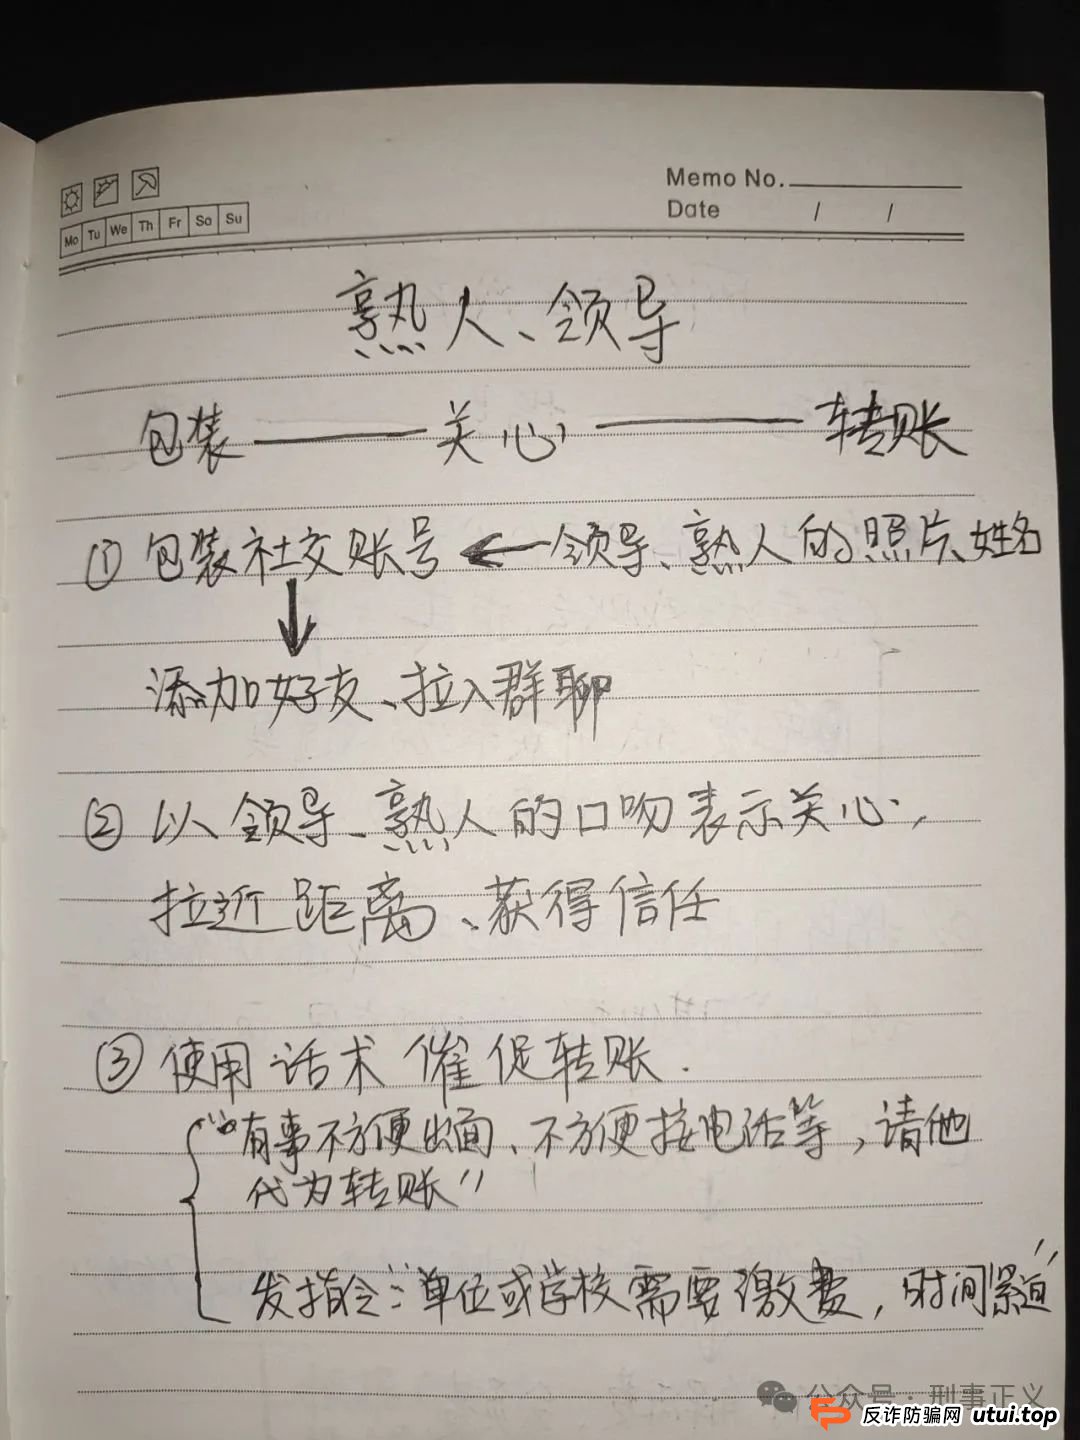 Memo No.
Date / /
Mo Tu We Th Fr Sa Su
熟人、领导
包装——关心——转账
① 包装社交账号 ← 领导、熟人的照片、姓名
↓
添加好友、拉入群聊
② 以领导、熟人的口吻表示关心,
拉近距离、获得信任
③ 使用话术催促转账.
“有事不方便出面、不方便接电话等,请他
代为转账”
发指令:“单位或学校需要缴费,时间紧迫”
公众号·刑事正义
反诈防骗网 utui.top